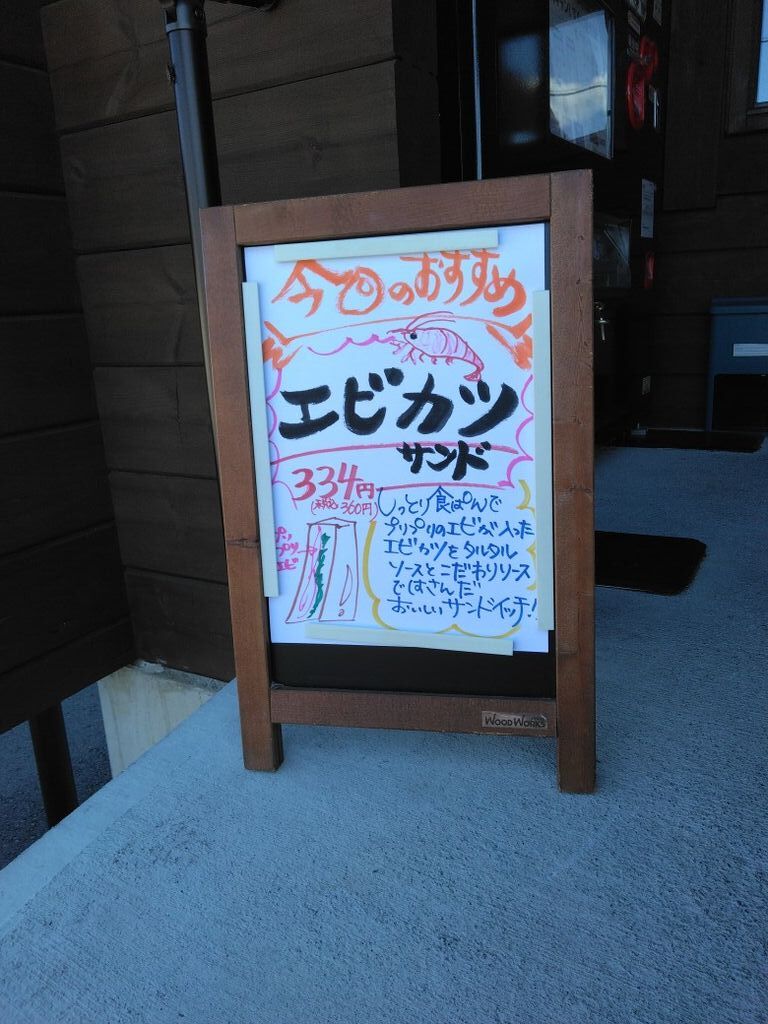 今日のおすすめ
エビカツ
サンド
334円
(税込360円)
しっとり食ぱんで
プリプリのエビが入った
エビカツをタルタル
ソースとこだわりソース
ではさんだ
おいしいサンドイッチ!
プリ
プリ
エビ
WOODWORKS